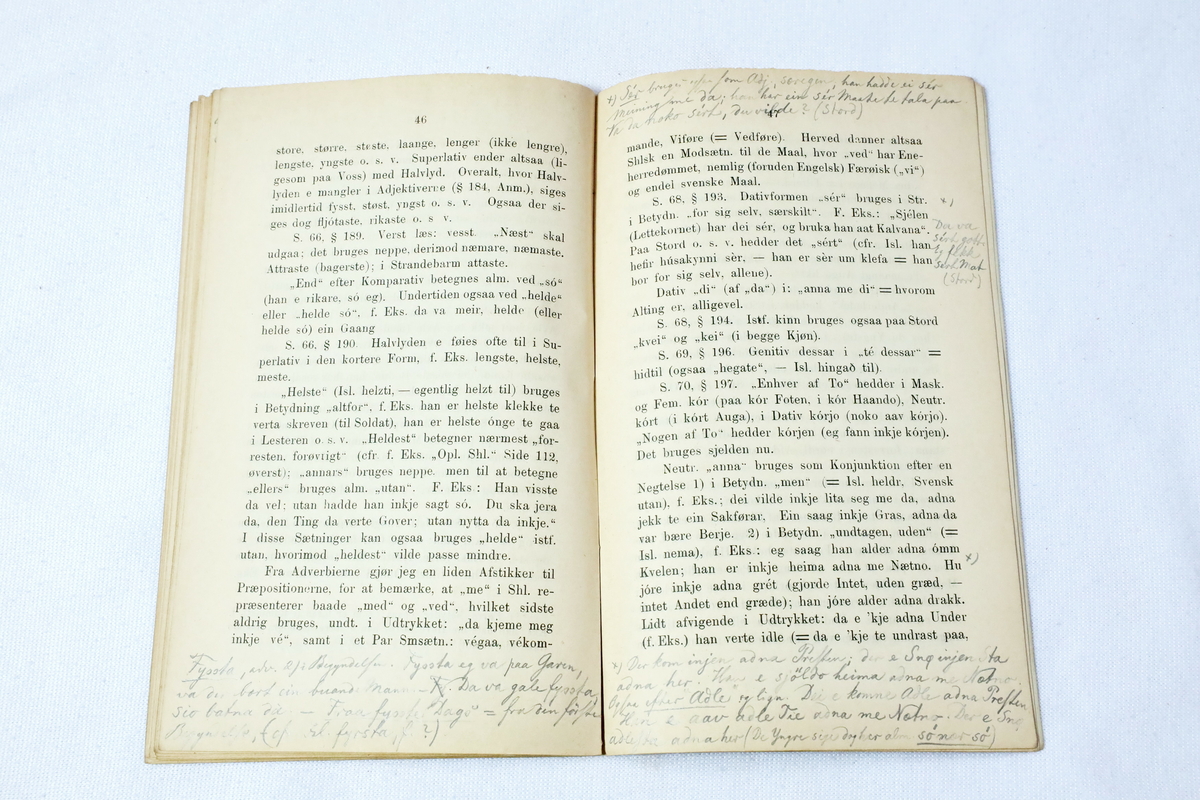 46
store, større, støste, laange, lenger (ikke lengre),
lengste, yngste o. s. v. Superlativ ender altsaa (li-
gesom paa Voss) med Halvlyd. Overalt, hvor Halv-
lyden e mangler i Adjektiverne (§ 184, Anm.), siges
imidlertid fysst, støst, yngst o. s. v. Ogsaa der si-
ges dog fljótaste, rikaste o. s v.
S. 66, § 189. Verst læs: vesst. „Næst“ skal
udgaa; det bruges neppe, derimod næmare, næmaste.
Attraste (bagerste); i Strandebarm attaste.
„End“ efter Komparativ betegnes alm. ved „só“
(han e rikare, só eg). Undertiden ogsaa ved „helde“
eller „helde só“, f. Eks. da va meir, helde (eller
helde só) ein Gaang
S. 66, § 190. Halvlyden e føies ofte til i Su-
perlativ i den kortere Form, f. Eks. lengste, helste,
meste.
„Helste“ (Isl. helzti, — egentlig helzt til) bruges
i Betydning „altfor“, f. Eks. han er helste klekke te
verta skreven (til Soldat), han er helste ónge te gaa
i Lesteren o. s. v. „Heldest“ betegner nærmest „for-
resten, forøvrigt“ (cfr. f. Eks. „Opl. Shl.“ Side 112,
øverst); „annars“ bruges neppe, men til at betegne
„ellers“ bruges alm. „utan“. F. Eks: Han visste
da vel; utan hadde han inkje sagt só. Du ska jera
da, den Ting da verte Gover; utan nytta da inkje.“
I disse Sætninger kan ogsaa bruges „helde“ istf.
utan, hvorimod „heldest“ vilde passe mindre.
Fra Adverbierne gjør jeg en liden Afstikker til
Præpositionerne, for at bemærke, at „me“ i Shl. re-
præsenterer baade „med“ og „ved“, hvilket sidste
aldrig bruges, undt. i Udtrykket: „da kjeme meg
inkje vé“, samt i et Par Smsætn.: végaa, vékom-
Fyssta, adv. Begyndelsen. Fyssta eg va paa Garen,
va buande Mann. Da va gale fyssta,
sio batna da — Fraa fyssta Dags = fra den første
(cf. Isl. fyrsta, f. ?)
+) Sér som Adj. særegen, han hadde ei sér
Meining me da; han har ein sér Maate te tala paa
noko sért, du vilde? (Stord)
mande, Viføre (= Vedføre). Herved danner altsaa
Shlsk en Modsætn. til de Maal, hvor „ved“ har Ene-
herredømmet, nemlig (foruden Engelsk) Færøisk („vi“)
og endel svenske Maal.
S. 68, § 193. Dativformen „sér“ bruges i Str. ×)
i Betydn. „for sig selv, særskilt“. F. Eks.: „Sjélen
(Lettekornet) har dei sér, og bruka han aat Kalvana“.
Paa Stord o. s. v. hedder det „sért“ (cfr. Isl. han
hefir húsakynni sèr, — han er sèr um klefa = han
bor for sig selv, allene).
Da va
sért gott
fekk
sért Mat
(Stord)
Dativ „di“ (af „da“) i: „anna me di“ = hvorom
Alting er, alligevel.
S. 68, § 194. Istf. kinn bruges ogsaa paa Stord
„kvei“ og „kei“ (i begge Kjøn).
S. 69, § 196. Genitiv dessar i „té dessar“ =
hidtil (ogsaa „hegate“, — Isl. hingað til).
S. 70, § 197. „Enhver af To“ hedder i Mask.
og Fem. kór (paa kór Foten, i kór Haando), Neutr.
kórt (i kórt Auga), i Dativ kórjo (noko aav kórjo).
„Nogen af To“ hedder kórjen (eg fann inkje kórjen).
Det bruges sjelden nu.
Neutr. „anna“ bruges som Konjunktion efter en
Negtelse 1) i Betydn. „men“ (= Isl. heldr, Svensk
utan), f. Eks.; dei vilde inkje lita seg me da, adna
jekk te ein Sakførar. Ein saag inkje Gras, adna da
var bære Berje. 2) i Betydn. „undtagen, uden“ (=
Isl. nema), f. Eks.: eg saag han alder adna ómm
Kvelen; han er inkje heima adna me Nætno. Hu ×)
jóre inkje adna grét (gjorde Intet, uden græd, —
intet Andet end græde); han jóre alder adna drakk.
Lidt afvigende i Udtrykket: da e 'kje adna Under
(f. Eks.) han verte idle (= da e 'kje te undrast paa,
×) Der kom injen adna Presten; der e Sno injensta
adna her. Han e sjøldo heima adna me Nætno.
efter Adle og lign. Dei e komne Adle adna Presten
Han e aav adle Tie adna me Nætno. Der e Sno
adlesta adna her (De Yngre sige dog her alm. só ner só)